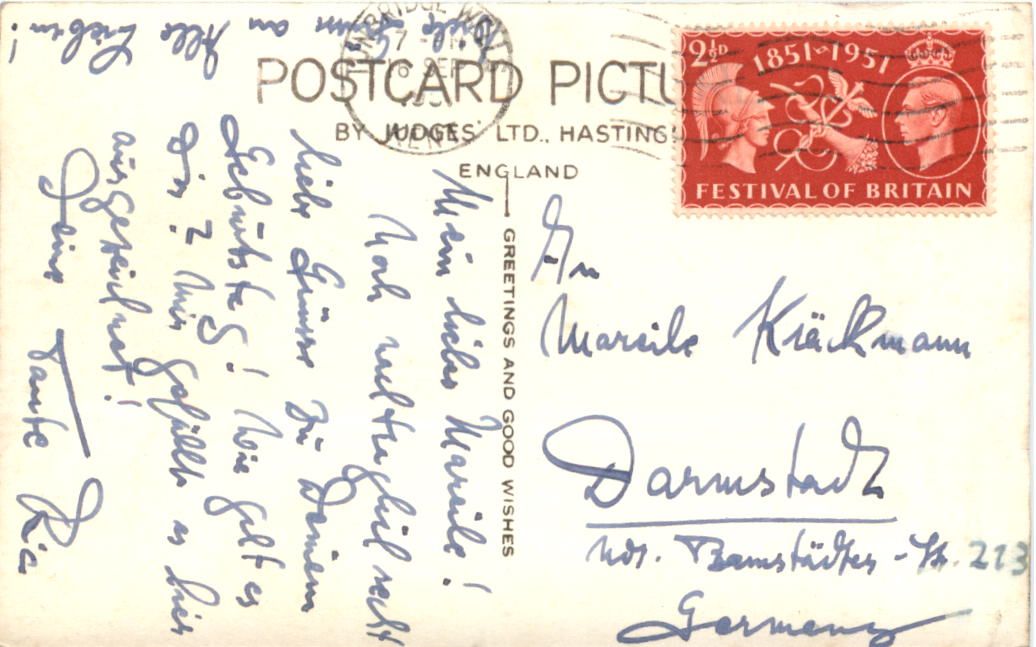 POSTCARD
BY JUDGES' LTD., HASTINGS
ENGLAND
GREETINGS AND GOOD WISHES
2½D
1851 1951
FESTIVAL OF BRITAIN
Mein liebes Mareile!
Noch nachträglich recht
liebe Grüsse zu Deinem
Geburtstag! Wie geht es
Dir? Mir gefällt es hier
ausgezeichnet!
Deine Tante Ria
an Alle Lieben!
An
Mareile Kräckmann
Darmstadt
Germany